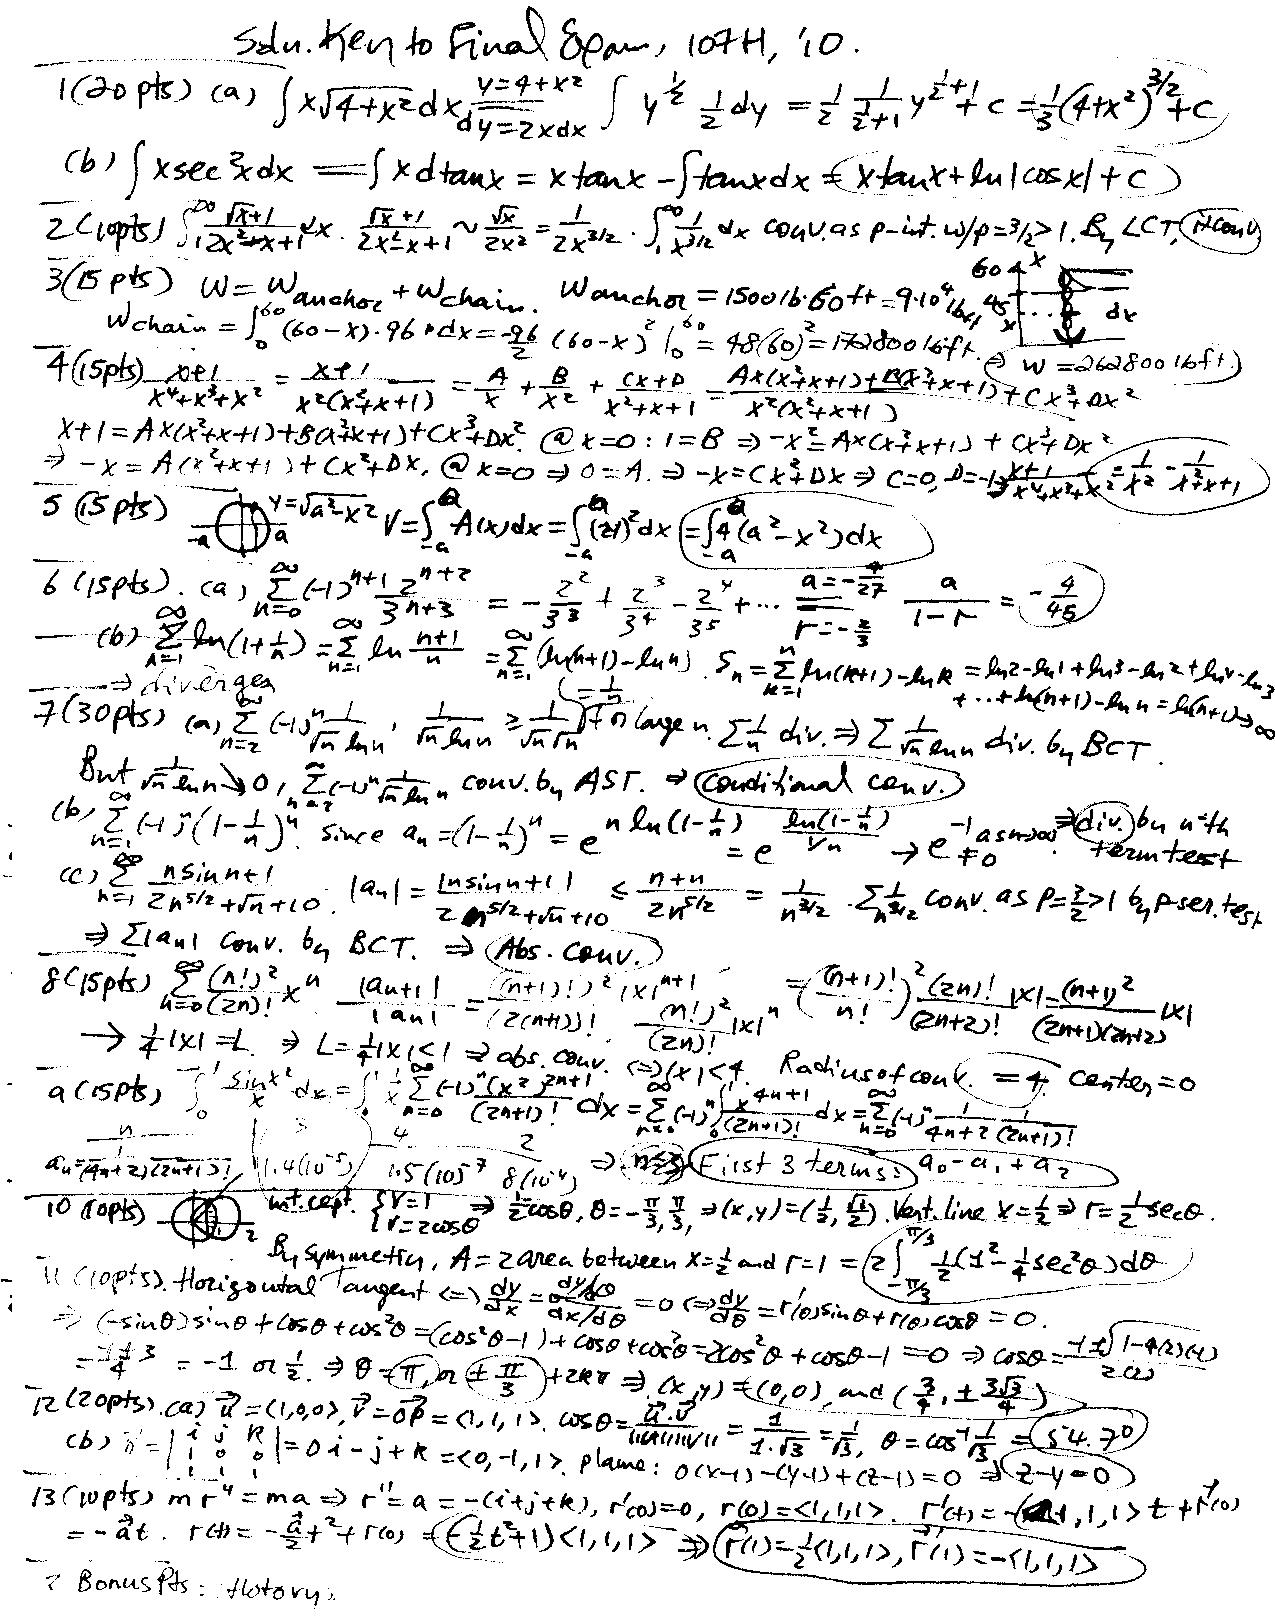 Soln. Key to Final Exam, 107H, '10.
1(20pts) (a) ∫x√(4+x²)dx (y=4+x², dy=2xdx) ∫ y^(1/2) ½dy = ½ 1/(½+1) y^(½+1) + c = ⅓(4+x²)^(3/2)+C
(b) ∫xsec²xdx = ∫xdtanx = xtanx - ∫tanxdx = xtanx+ln|cosx|+C
2(10pts) ∫₁^∞ (√x+1)/(2x²-x+1) dx. (√x+1)/(2x²-x+1) ~ √x/(2x²) = 1/(2x^(3/2)). ∫₁^∞ 1/x^(3/2) dx conv. as p-int. w/p=3/2>1. By LCT, it conv
3(15pts) W = W anchor + W chain. W anchor = 1500lb·60ft = 9·10⁴ lbft 60 x 45 x dx
W chain = ∫₀^60 (60-x)·96 dx = -96/2 (60-x)² |₀^60 = 48(60)² = 172800 lbft. ⇒ W = 262800 lbft.
4(15pts) (x+1)/(x⁴+x³+x²) = (x+1)/(x²(x²+x+1)) = A/x + B/x² + (Cx+D)/(x²+x+1) = (Ax(x²+x+1)+B(x²+x+1)+Cx³+Dx²)/(x²(x²+x+1))
x+1 = Ax(x²+x+1)+B(x²+x+1)+Cx³+Dx². @x=0: 1=B ⇒ -x² = Ax(x²+x+1) + Cx³+Dx²
⇒ -x = A(x²+x+1)+Cx²+Dx. @x=0 ⇒ 0=A. ⇒ -x=Cx²+Dx ⇒ C=0, D=-1 ⇒ (x+1)/(x⁴+x³+x²) = 1/x² - 1/(x²+x+1)
5(15pts) -a a y=√(a²-x²) V=∫₋ₐ^a A(x)dx = ∫₋ₐ^a (2y)²dx = ∫₋ₐ^a 4(a²-x²)dx
6(15pts). (a) Σ_{n=0}^∞ (-1)^(n+1) 2^(n+2)/3^(n+3) = -2²/3³ + 2³/3⁴ - 2⁴/3⁵ + ... (a=-4/27, r=-2/3) a/(1-r) = -4/45
(b) Σ_{n=1}^∞ ln(1+1/n) = Σ_{n=1}^∞ ln (n+1)/n = Σ_{n=1}^∞ (ln(n+1)-ln n). Sₙ = Σ_{k=1}^n ln(k+1)-ln k = ln2-ln1+ln3-ln2+ln4-ln3
+...+ln(n+1)-ln n = ln(n+1)→∞
⇒ diverges
7(30pts) (a) Σ_{n=2}^∞ (-1)ⁿ 1/(√n ln n), 1/(√n ln n) ≥ 1/(√n√n) (=1/n) for large n. Σ1/n div. ⇒ Σ 1/(√n ln n) div. by BCT.
But 1/(√n ln n)↘0, Σ_{n=2}^∞ (-1)ⁿ 1/(√n ln n) conv. by AST. ⇒ Conditional conv.
(b) Σ_{n=1}^∞ (-1)ⁿ(1-1/n)ⁿ. Since aₙ=(1-1/n)ⁿ = e^(n ln(1-1/n)) = e^(ln(1-1/n)/(1/n)) → e⁻¹ ≠0 as n→∞ ⇒ div. by n-th term test
(c) Σ_{n=1}^∞ (n sin n+1)/(2n^(5/2)+√n+10). |aₙ| = |n sin n+1|/(2n^(5/2)+√n+10) ≤ (n+n)/(2n^(5/2)) = 1/n^(3/2). Σ1/n^(3/2) conv. as p=3/2>1 by p-ser. test
⇒ Σ|aₙ| conv. by BCT. ⇒ Abs. conv.
8(15pts) Σ_{n=0}^∞ (n!)²/(2n)! xⁿ |aₙ₊₁|/|aₙ| = ((n+1)!)²|x|^(n+1)/(2(n+1))! / (n!)²/(2n)! |x|ⁿ = ((n+1)!/n!)² (2n)!/(2n+2)! |x| = (n+1)²/((2n+1)(2n+2)) |x|
→ ¼|x| = L. ⇒ L=¼|x|<1 ⇒ abs. conv. ⇔ |x|<4. Radius of conv. = 4, center=0
9(15pts) ∫₀¹ sin x²/x dx = ∫₀¹ 1/x Σ_{n=0}^∞ (-1)ⁿ(x²)^(2n+1)/(2n+1)! dx = Σ_{n=0}^∞ (-1)ⁿ∫₀¹ x^(4n+1)/(2n+1)! dx = Σ_{n=0}^∞ (-1)ⁿ 1/(4n+2) 1/(2n+1)!
n 3 4 2
aₙ=1/((4n+2)(2n+1)!) 1.4(10⁻⁵) 1.5(10)⁻⁷ 8(10⁻⁴) ⇒ First 3 terms: a₀-a₁+a₂
10(10pts) 2 int.cept. {r=1, r=2cosθ ⇒ ½=cosθ, θ=-π/3, π/3, ⇒(x,y)=(½, √3/2). Vert. line x=½ ⇒ r=½secθ.
By symmetry, A = 2 area between x=½ and r=1 = 2∫_{-π/3}^{π/3} ½(1²-¼sec²θ)dθ
11(10pts). Horizontal Tangent ⇔ dy/dx = (dy/dθ)/(dx/dθ) = 0 ⇔ dy/dθ = r'(θ)sinθ+r(θ)cosθ = 0.
⇒ (-sinθ)sinθ+cosθ+cos²θ=(cos²θ-1)+cosθ+cos²θ=2cos²θ+cosθ-1=0 ⇒ cosθ = (-1±√(1-4(2)(-1)))/2(2)
= (-1±3)/4 = -1 or ½. ⇒ θ=π, or ±π/3 +2kπ ⇒ (x,y) = (0,0), and (3/4, ±3√3/4)
12(20pts). (a) u⃗=<1,0,0>, v⃗=OP⃗=<1,1,1>. cosθ = u⃗·v⃗/||u||||v|| = 1/(1·√3) = 1/√3, θ=cos⁻¹ 1/√3 = 54.7°
(b) n⃗=|i j k; 1 0 0; 1 1 1| = 0i-j+k = <0,-1,1>. plane: 0(x-1)-(y-1)+(z-1)=0 ⇒ z-y=0
13(10pts) mr''=ma ⇒ r''=a=-(i+j+k), r'(0)=0, r(0)=<1,1,1>. r'(t)=-<1,1,1>t+r⃗'(0)
=-a⃗t. r(t)=-a⃗/2 t²+r(0) = (-½t²+1)<1,1,1> ⇒ r⃗(1)=½<1,1,1>, r⃗'(1)=-<1,1,1>
2 Bonus Pts: